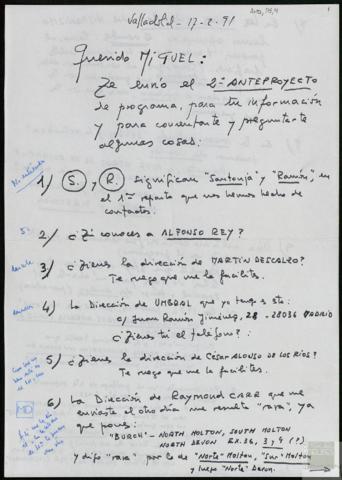 Valladolid - 17-2-91
1
Querido MIGUEL:
Te envío el 2º ANTEPROYECTO
de programa, para tu información
y para comentarte y preguntarte
algunas cosas:
1) S. y R. significan "Santonja" y "Ramón", en
el 1er reparto que nos hemos hecho de
contactos.
2/ ¿Tú conoces a ALFONSO REY?
3) ¿Tienes la dirección de MARTÍN DESCALZO?
Te ruego que me la facilites.
4) La Dirección de UMBRAL que yo tengo es esta:
c/ Juan Ramón Jiménez, 28 - 28036 MADRID
¿Tienes tú el teléfono?
5) ¿Tienes la dirección de CÉSAR ALONSO DE LOS RÍOS?
Te ruego que me la facilites.
6) La Dirección de Raymond CARR que me
enviaste el otro día me resulta "rara", ya
que pones:
MD
"BURCH" - NORTH MOLTON, SOUTH MOLTON
NORTH DEVON EX.36, 3 y 4 (?)
y digo "rara" por lo de "Norte" Molton, "Sur" Molton
y luego "Norte" Devon.